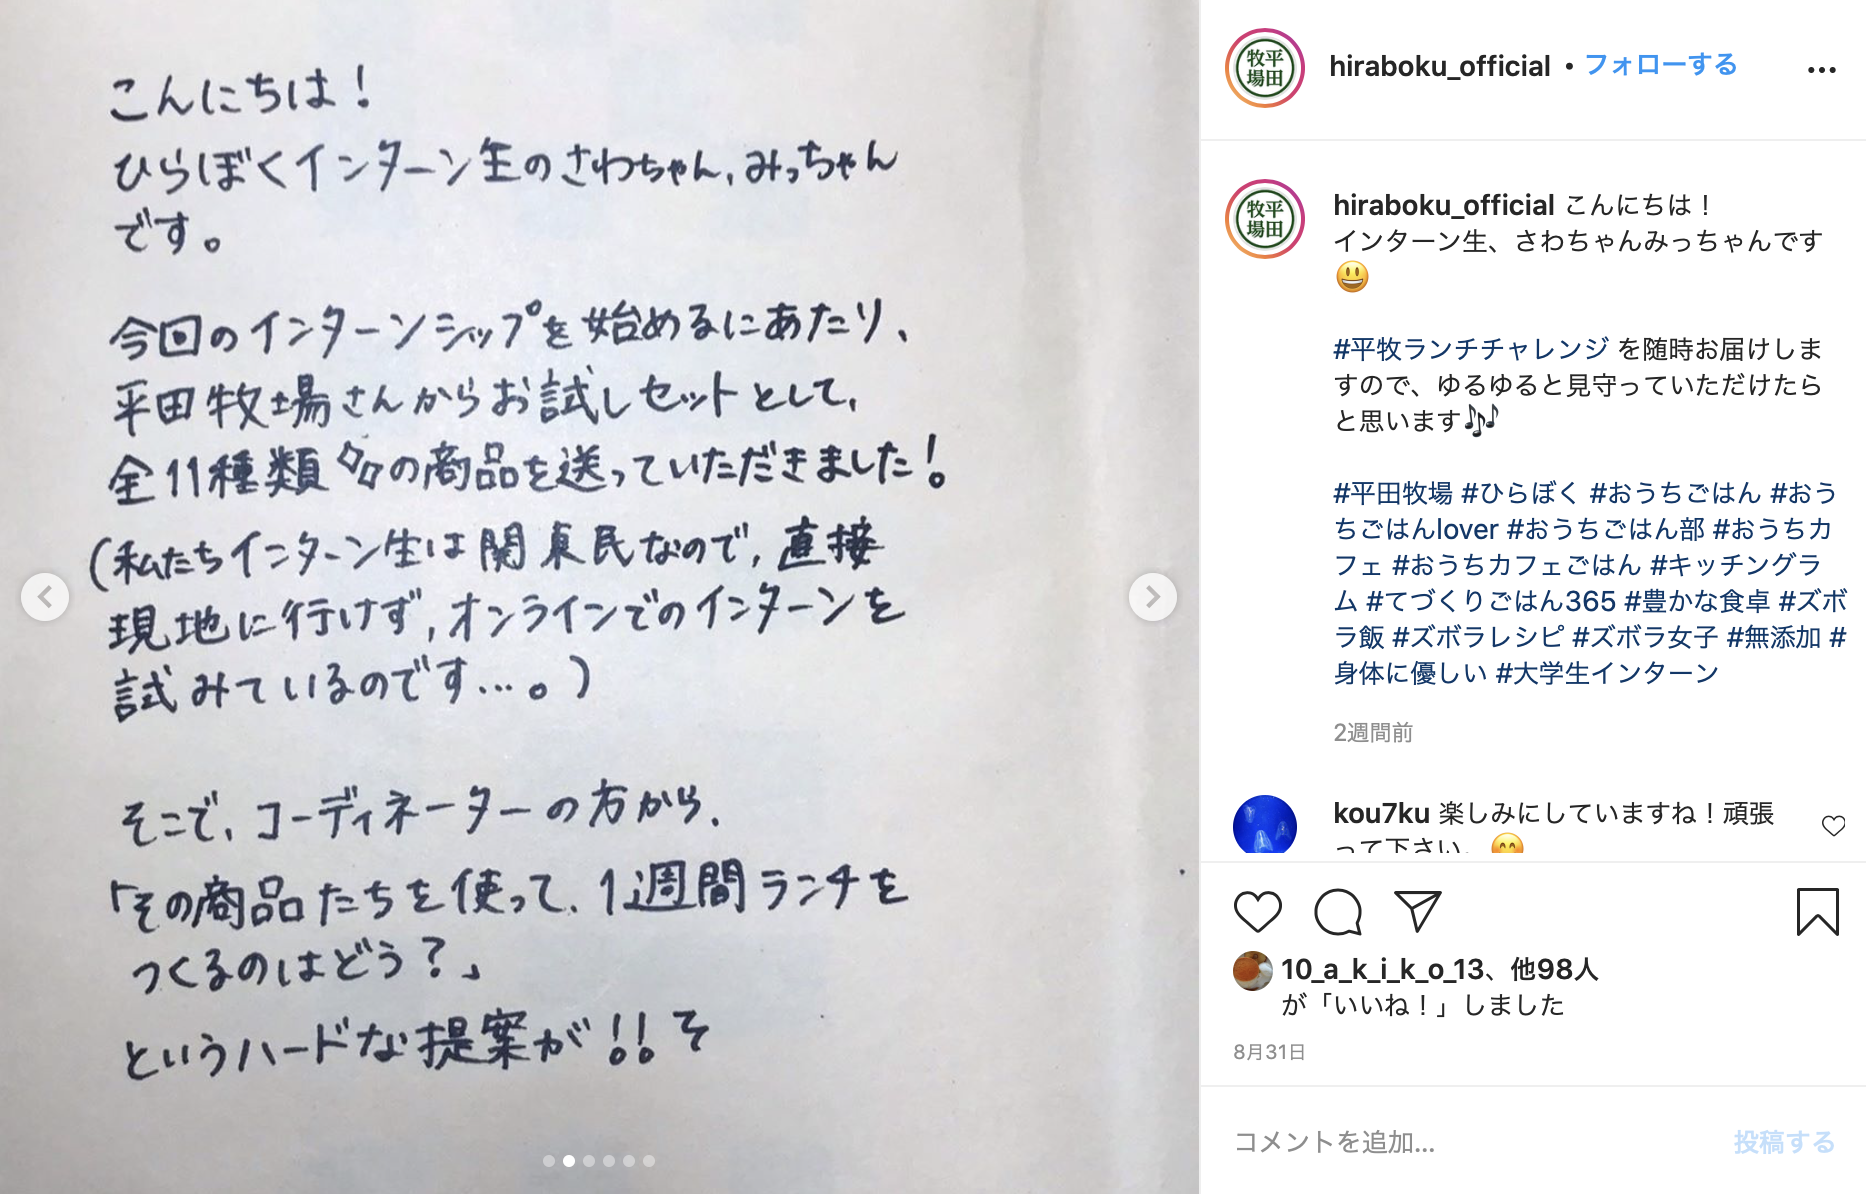 こんにちは！
ひらぼくインターン生のさわちゃん、みっちゃん
です。
今回のインターンシップを始めるにあたり、
平田牧場さんからお試しセットとして、
全11種類の商品を送っていただきました！
(私たちインターン生は関東民なので、直接
現地に行けず、オンラインでのインターンを
試みているのです…。)
そこで、コーディネーターの方から、
「その商品たちを使って、1週間ランチを
つくるのはどう？」
というハードな提案が!! そ
牧平
場田
hiraboku_official • フォローする
牧平
場田
hiraboku_official こんにちは！
インターン生、さわちゃんみっちゃんです
😃
#平牧ランチチャレンジ を随時お届けしま
すので、ゆるゆると見守っていただけたら
と思います🎶
#平田牧場 #ひらぼく #おうちごはん #おう
ちごはんlover #おうちごはん部 #おうちカ
フェ #おうちカフェごはん #キッチングラ
ム #てづくりごはん365 #豊かな食卓 #ズボ
ラ飯 #ズボラレシピ #ズボラ女子 #無添加 #
身体に優しい #大学生インターン
2週間前
kou7ku 楽しみにしていますね！頑張
って下さい。😊
10_a_k_i_k_o_13、他98人
が「いいね！」しました
8月31日
コメントを追加...
投稿する